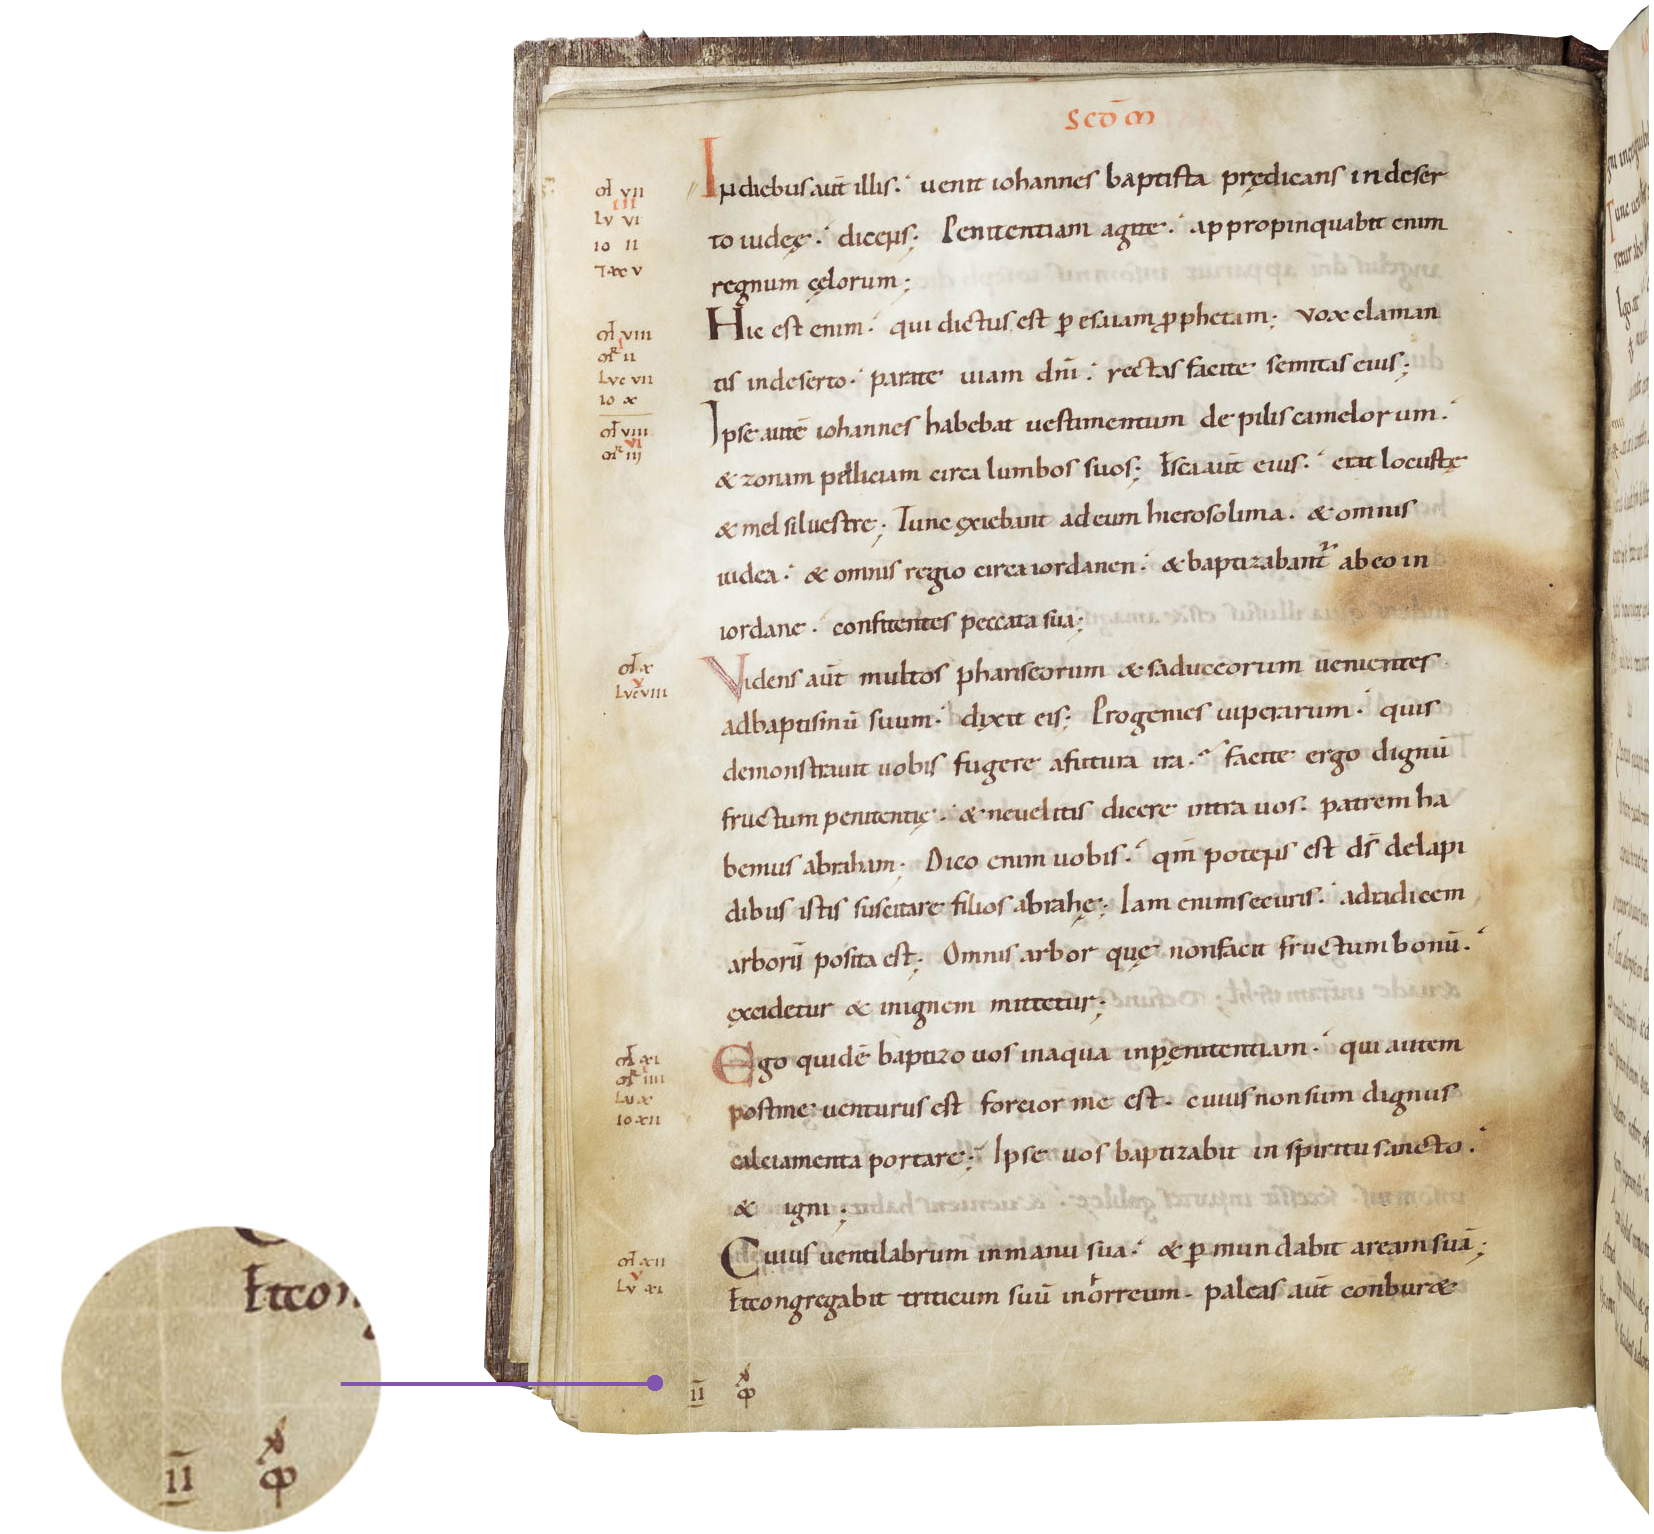 SCD̄ M
In diebus aut̄ illis. uenit iohannes baptista prędicans in deser
to iudeę. dicens; Penitentiam agite. appropinquabit enim
regnum cęlorum;
Hic est enim. qui dictus est p esaiam pphetam; vox claman
tis in deserto. parate uiam dnī. rectas facite semitas eius;
Ipse autē iohannes habebat uestimentum de pilis camelorum.
& zonam pelliciam circa lumbos suos; Esca aut̄ eius. erat locustę
& mel siluestre; Tunc exiebant ad eum hierosolima. & omnis
iudea. & omnis regio circa iordanen. & baptizabant̄ ab eo in
iordane. confitentes peccata sua;
Videns aut̄ multos phariseorum & saduceorum uenientes
ad baptismū suum. dixit eis; Progenies uiperarum. quis
demonstrauit uobis fugere a futura ira. facite ergo dignū
fructum penitentię. & ne uelitis dicere intra uos. patrem ha
bemus abraham; Dico enim uobis. qm̄ potens est ds̄ de lapi
dibus istis suscitare filios abrahę; Iam enim securis. ad radicem
arborū posita est; Omnis arbor quę non facit fructum bonū.
excidetur & in ignem mittetur;
Ego quidē baptizo uos in aqua in penitentiam. qui autem
post me uenturus est forcior me est. cuius non sum dignus
calciamenta portare; Ipse uos baptizabit in spiritu sancto.
& igni;
Cuius uentilabrum in manu sua. & p mundabit aream suā;
Et congregabit triticum suū in horreum. paleas aut̄ conbur&
M VII
III
LV VI
IO II
M VIII
I
MR II
LVC VII
IO X
M VIIII
VI
MR III
M X
V
LVC VIII
M XI
MR IIII
LU X
IO XII
M XII
V
LV XI
II
Et con
II